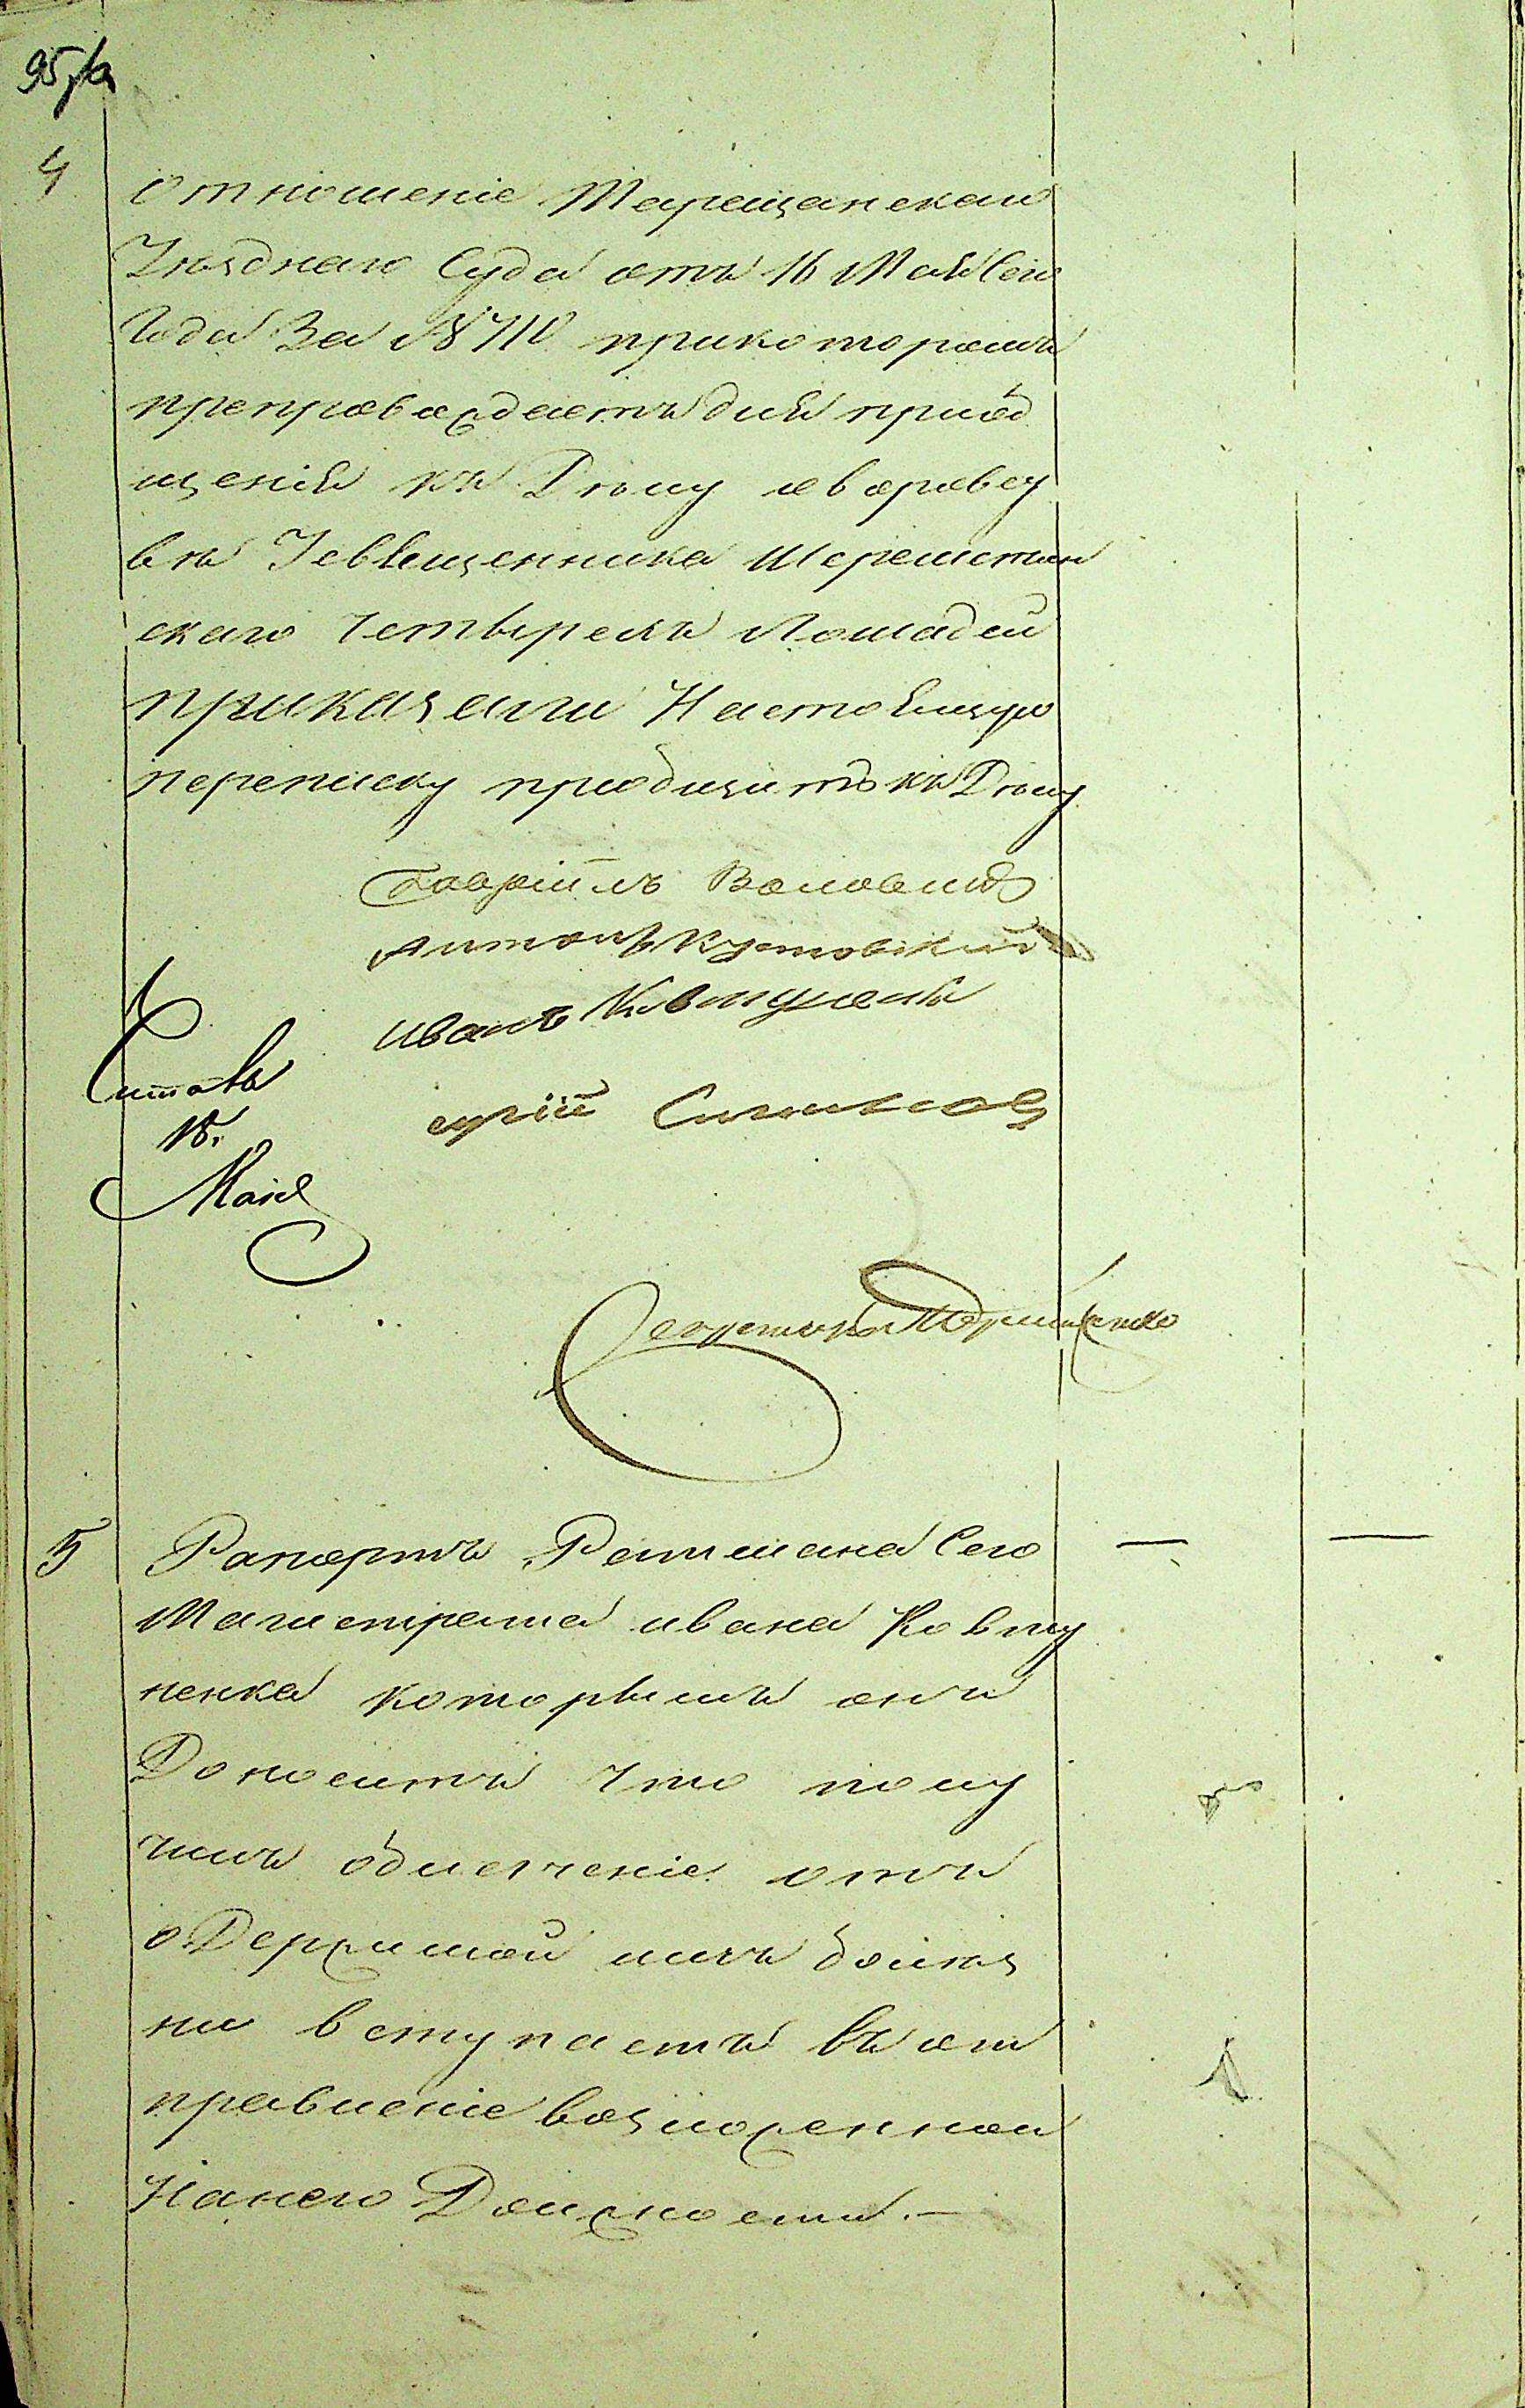 95/а
4
Отношеніе Таращанскаго
Уѣзднаго Суда отъ 16 Мая Сего
Года За № 710 прикоторомъ
препровождаетъ для пріоб
щенія къ Дѣлу о воровсу
вѣ Усвященника Шереметин
скаго Четырехъ Лошадей
приказали Настоящую
переписку пріобщить къ Дѣлу
Гавріилъ
Антонъ Кутовскій
Иванъ Ковтуненк
Юрій
Читалъ
18.
Маія
Секретарь
5
Рапортъ Ратмана Сего
Магистрата ивана Ковту
ненка которымъ онъ
Доноситъ что полу
чилъ облегченіе отъ
оДержимой имъ болѣз
ни вступаетъ въ от
правленіе возложенной
Нанего Должности. —